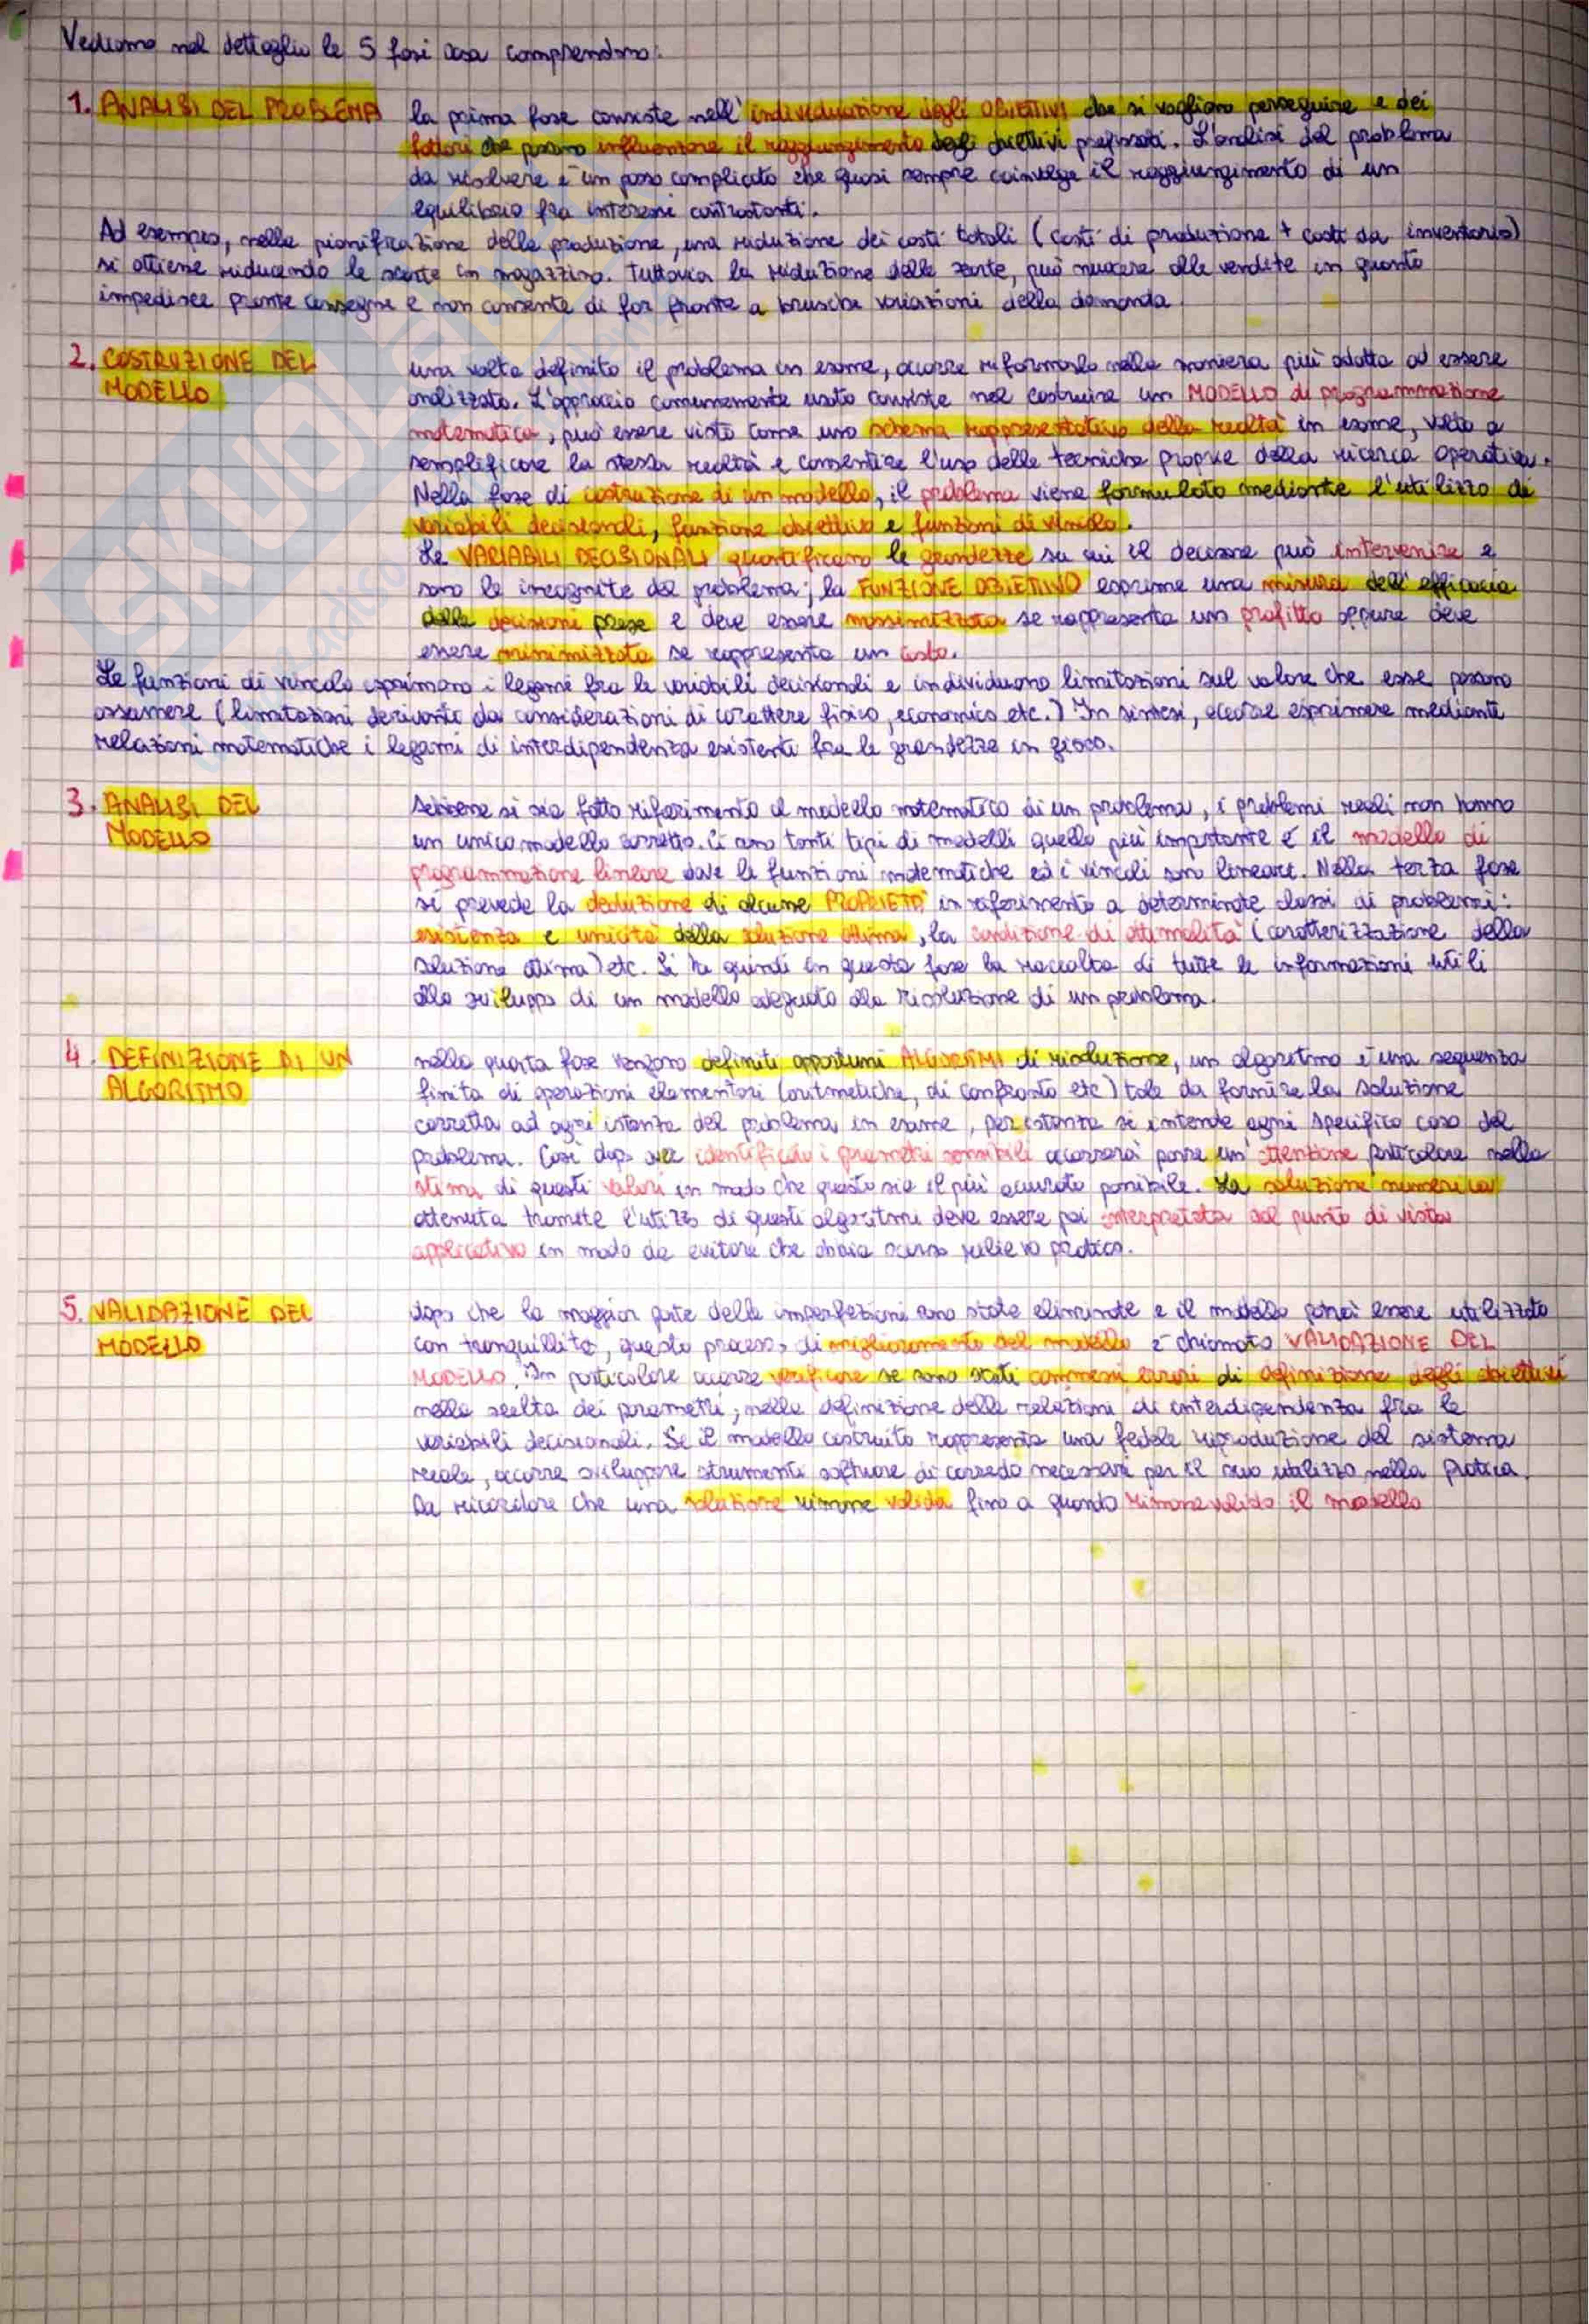 Vediamo nel dettaglio le 5 fasi cosa comprendono:
1. ANALISI DEL PROBLEMA la prima fase consiste nell'individuazione degli OBIETTIVI che si vogliono perseguire e dei
fattori che possono influenzare il raggiungimento degli obiettivi prefissati. L'analisi del problema
da risolvere è un passo complicato che quasi sempre coinvolge il raggiungimento di un
equilibrio fra interessi contrastanti.
Ad esempio, nella pianificazione della produzione, una riduzione dei costi totali (costi di produzione + costi da inventario)
si ottiene riducendo le scorte in magazzino. Tuttavia la riduzione delle scorte, può nuocere alle vendite in quanto
impedisce pronte consegne e non consente di far fronte a brusche variazioni della domanda.
2. COSTRUZIONE DEL MODELLO una volta definito il problema in esame, occorre riformarlo nella maniera più adatta ad essere
analizzato. L'approccio comunemente usato consiste nel costruire un MODELLO di programmazione
matematica, può essere visto come uno schema rappresentativo della realtà in esame, volto a
semplificare la stessa realtà e consentire l'uso delle tecniche proprie della ricerca operativa.
Nella fase di costruzione di un modello, il problema viene formulato mediante l'utilizzo di
variabili decisionali, funzione obiettivo e funzioni di vincolo.
Le VARIABILI DECISIONALI quantificano le grandezze su cui il decisore può intervenire e
sono le incognite del problema; la FUNZIONE OBIETTIVO esprime una misura dell'efficacia
delle decisioni prese e deve essere massimizzata se rappresenta un profitto oppure deve
essere minimizzata se rappresenta un costo.
Le funzioni di vincolo esprimono i legami fra le variabili decisionali e individuano limitazioni sul valore che esse possono
assumere (limitazioni derivanti da considerazioni di carattere fisico, economico etc.) In sintesi, occorre esprimere mediante
relazioni matematiche i legami di interdipendenza esistenti fra le grandezze in gioco.
3. ANALISI DEL MODELLO sebbene si sia fatto riferimento al modello matematico di un problema, i problemi reali non hanno
un unico modello corretto. Ci sono tanti tipi di modelli quello più importante è il modello di
programmazione lineare dove le funzioni matematiche ed i vincoli sono lineari. Nella terza fase
si prevede la deduzione di alcune PROPRIETÀ in riferimento a determinate classi di problemi:
esistenza e unicità della soluzione ottima, la condizione di ottimalità (caratterizzazione della
soluzione ottima) etc. Si ha quindi in questa fase la raccolta di tutte le informazioni utili
allo sviluppo di un modello adeguato alla risoluzione di un problema.
4. DEFINIZIONE DI UN ALGORITMO nella quarta fase vengono definiti opportuni ALGORITMI di risoluzione, un algoritmo è una sequenza
finita di operazioni elementari (aritmetiche, di confronto etc) tale da fornire la soluzione
corretta ad ogni istanza del problema in esame, per istanza si intende ogni specifico caso del
problema. Così dopo aver identificato i parametri sensibili occorrerà porre un'attenzione particolare nella
stima di questi valori in modo che questo sia il più accurato possibile. La soluzione numerica
ottenuta tramite l'utilizzo di questi algoritmi deve essere poi interpretata dal punto di vista
applicativo in modo da evitare che abbia scarso rilievo pratico.
5. VALIDAZIONE DEL MODELLO dopo che la maggior parte delle imperfezioni sono state eliminate e il modello potrà essere utilizzato
con tranquillità, questo processo di miglioramento del modello è chiamato VALIDAZIONE DEL
MODELLO. In particolare occorre verificare se sono stati commessi errori di definizione degli obiettivi
nella scelta dei parametri, nella definizione delle relazioni di interdipendenza fra le
variabili decisionali. Se il modello costruito rappresenta una fedele riproduzione del sistema
reale, occorre sviluppare strumenti software di corredo necessari per il suo utilizzo nella pratica.
Da ricordare che una soluzione rimane valida fino a quando rimane valido il modello